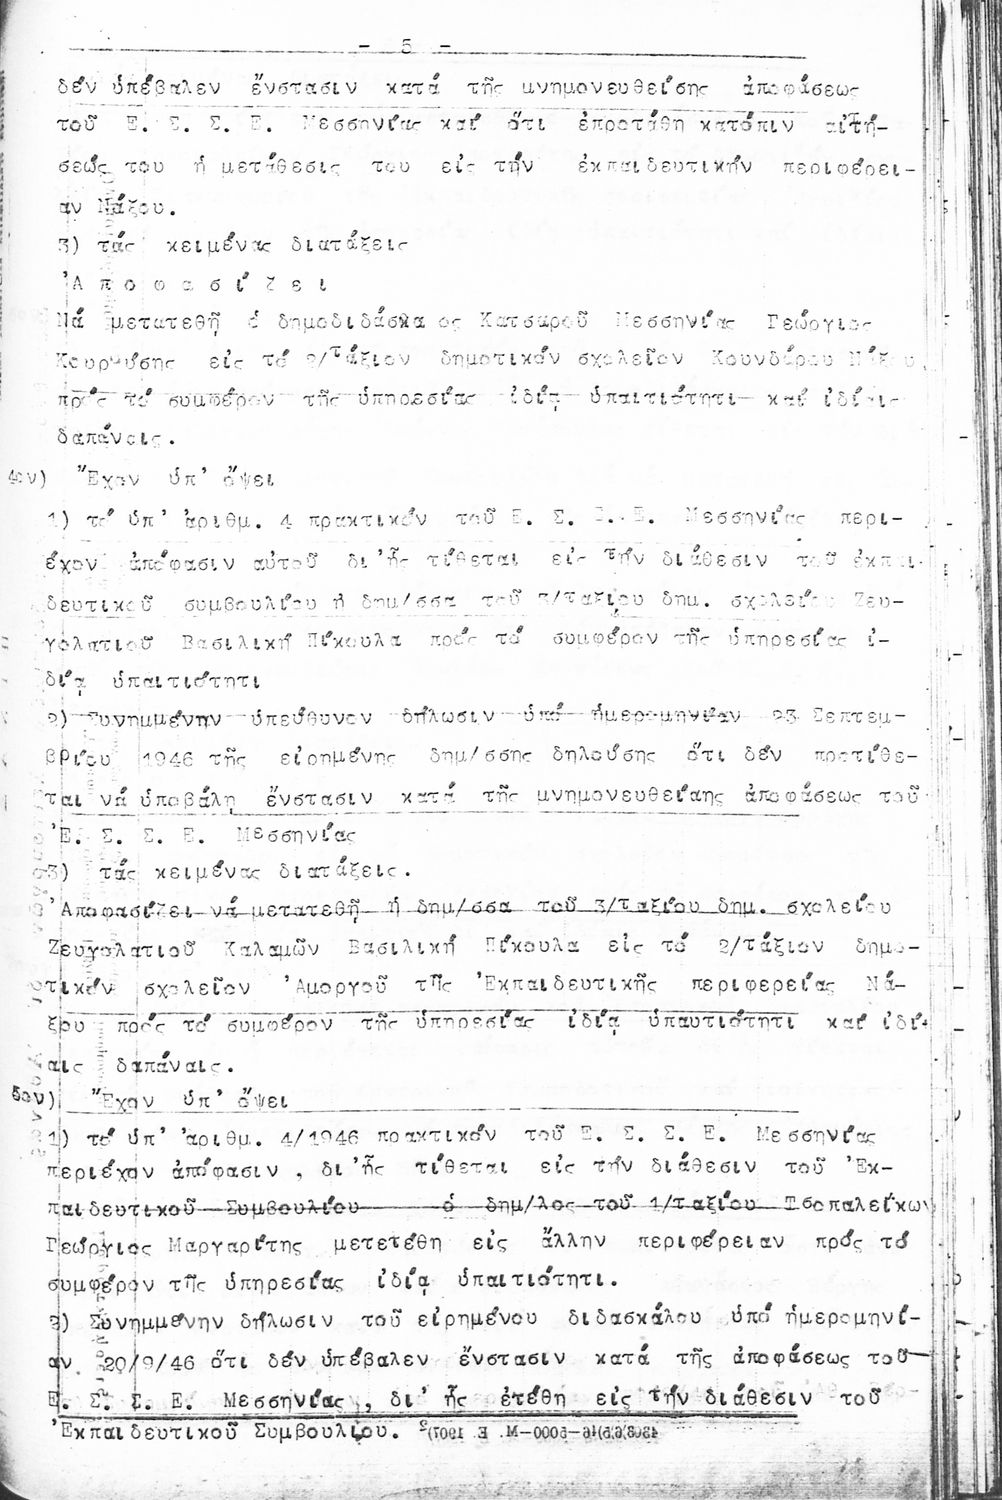 - 5 -
δέν ὑπέβαλεν ἔνστασιν κατά τῆς μνημονευθείσης ἀποφάσεως
τοῦ Ε. Σ. Σ. Ε. Μεσσηνίας καί ὅτι ἐπροτάθη κατόπιν αἰτή-
σεώς του ἡ μετάθεσις του εἰς τήν ἐκπαιδευτικήν περιφέρει-
αν Νάξου.
3) τάς κειμένας διατάξεις
Ἀ π ο φ α σ ί ζ ε ι
Νά μετατεθῇ ὁ δημοδιδάσκα ος Κατσαροῦ Μεσσηνίας Γεώργιος
εἰς τό 2/τάξιον δημοτικόν σχολεῖον Κουνδάρου Νάξου,
πρός τό συμφέρον τῆς ὑπηρεσίας ἰδίᾳ ὑπαιτιότητι καί ἰδίαις
δαπάναις.
4ον) Ἔχον ὑπ' ὄψει
1) τό ὑπ' ἀριθμ. 4 πρακτικόν τοῦ Ε. Σ. Σ. Ε. Μεσσηνίας περι-
έχον ἀπόφασιν αὐτοῦ δι' ἧς τίθεται εἰς τήν διάθεσιν τοῦ ἐκπαι-
δευτικοῦ συμβουλίου ἡ δημ/σσα τοῦ 3/ταξίου δημ. σχολείου Ζευ-
γολατιοῦ Βασιλική Πίκουλα πρός τό συμφέρον τῆς ὑπηρεσίας ἰ-
δίᾳ ὑπαιτιότητι
2) Συνημμένην ὑπεύθυνον δήλωσιν ὑπό ἡμερομηνίαν 23 Σεπτεμ-
βρίου 1946 τῆς εἰρημένης δημ/σσης δηλούσης ὅτι δέν προτίθε-
ται νά ὑποβάλῃ ἔνστασιν κατά τῆς μνημονευθείαης ἀποφάσεως τοῦ
Ἐ. Σ. Σ. Ε. Μεσσηνίας
3) τάς κειμένας διατάξεις.
Ἀποφασίζει νά μετατεθῇ ἡ δημ/σσα τοῦ 3/ταξίου δημ. σχολείου
Ζευγολατιοῦ Καλαμῶν Βασιλική Πίκουλα εἰς τό 2/τάξιον δημο-
τικόν σχολεῖον Ἀμοργοῦ τῆς Ἐκπαιδευτικῆς περιφερείας Νά-
ξου πρός τό συμφέρον τῆς ὑπηρεσίας ἰδίᾳ ὑπαυτιότητι καί ἰδί-
αις δαπάναις.
5ον) Ἔχον ὑπ' ὄψει
1) τό ὑπ' ἀριθμ. 4/1946 πρακτικόν τοῦ Ε. Σ. Σ. Ε. Μεσσηνίας
περιέχον ἀπόφασιν , δι' ἧς τίθεται εἰς τήν διάθεσιν τοῦ Ἐκ-
παιδευτικοῦ Συμβουλίου ὁ δημ/λος τοῦ 1/ταξίου Τσοπαλείκων
Γεώργιος Μαργαρίτης μετετέθη εἰς ἄλλην περιφέρειαν πρός τό
συμφέρον τῆς ὑπηρεσίας ἰδίᾳ ὑπαιτιότητι.
2) Συνημμένην δήλωσιν τοῦ εἰρημένου διδασκάλου ὑπό ἡμερομηνί-
αν 20/9/46 ὅτι δέν ὑπέβαλεν ἔνστασιν κατά τῆς ἀποφάσεως τοῦ
Ε. Σ. Σ. Ε. Μεσσηνίας , δι' ἧς ἐτέθη εἰς τήν διάθεσιν τοῦ
Ἐκπαιδευτικοῦ Συμβουλίου.